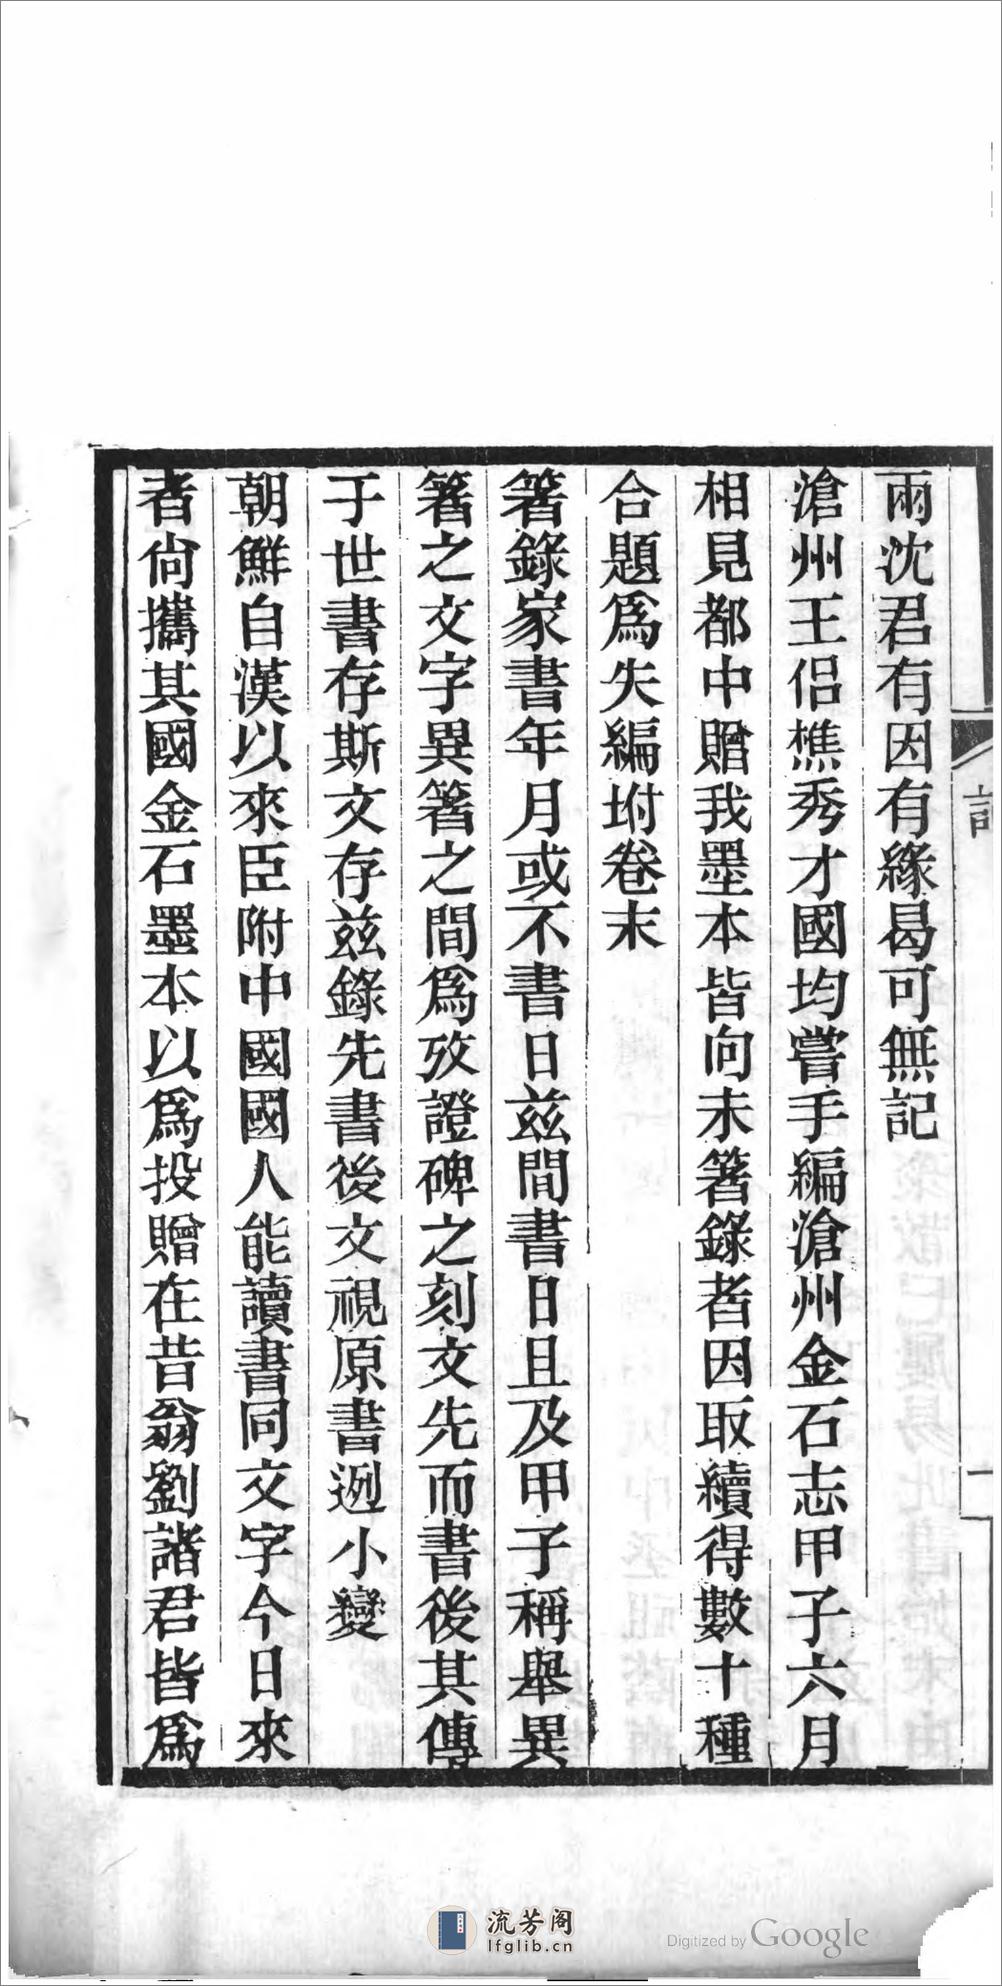 兩沈君有因有緣曷可無記
滄州王侶樵秀才國均嘗手編滄州金石志甲子六月
相見都中贈我墨本皆向未箸錄者因取續得數十種
合題爲失編坿卷末
箸錄家書年月或不書日茲間書日且及甲子稱舉異
箸之文字異箸之間爲攷證碑之刻文先而書後其傳
于世書存斯文存茲錄先書後文視原書迾小變
朝鮮自漢以來臣附中國國人能讀書同文字今日來
者尙攜其國金石墨本以爲投贈在昔翁劉諸君皆爲
一
流芳阁
lfglib.cn
Digitized by Google